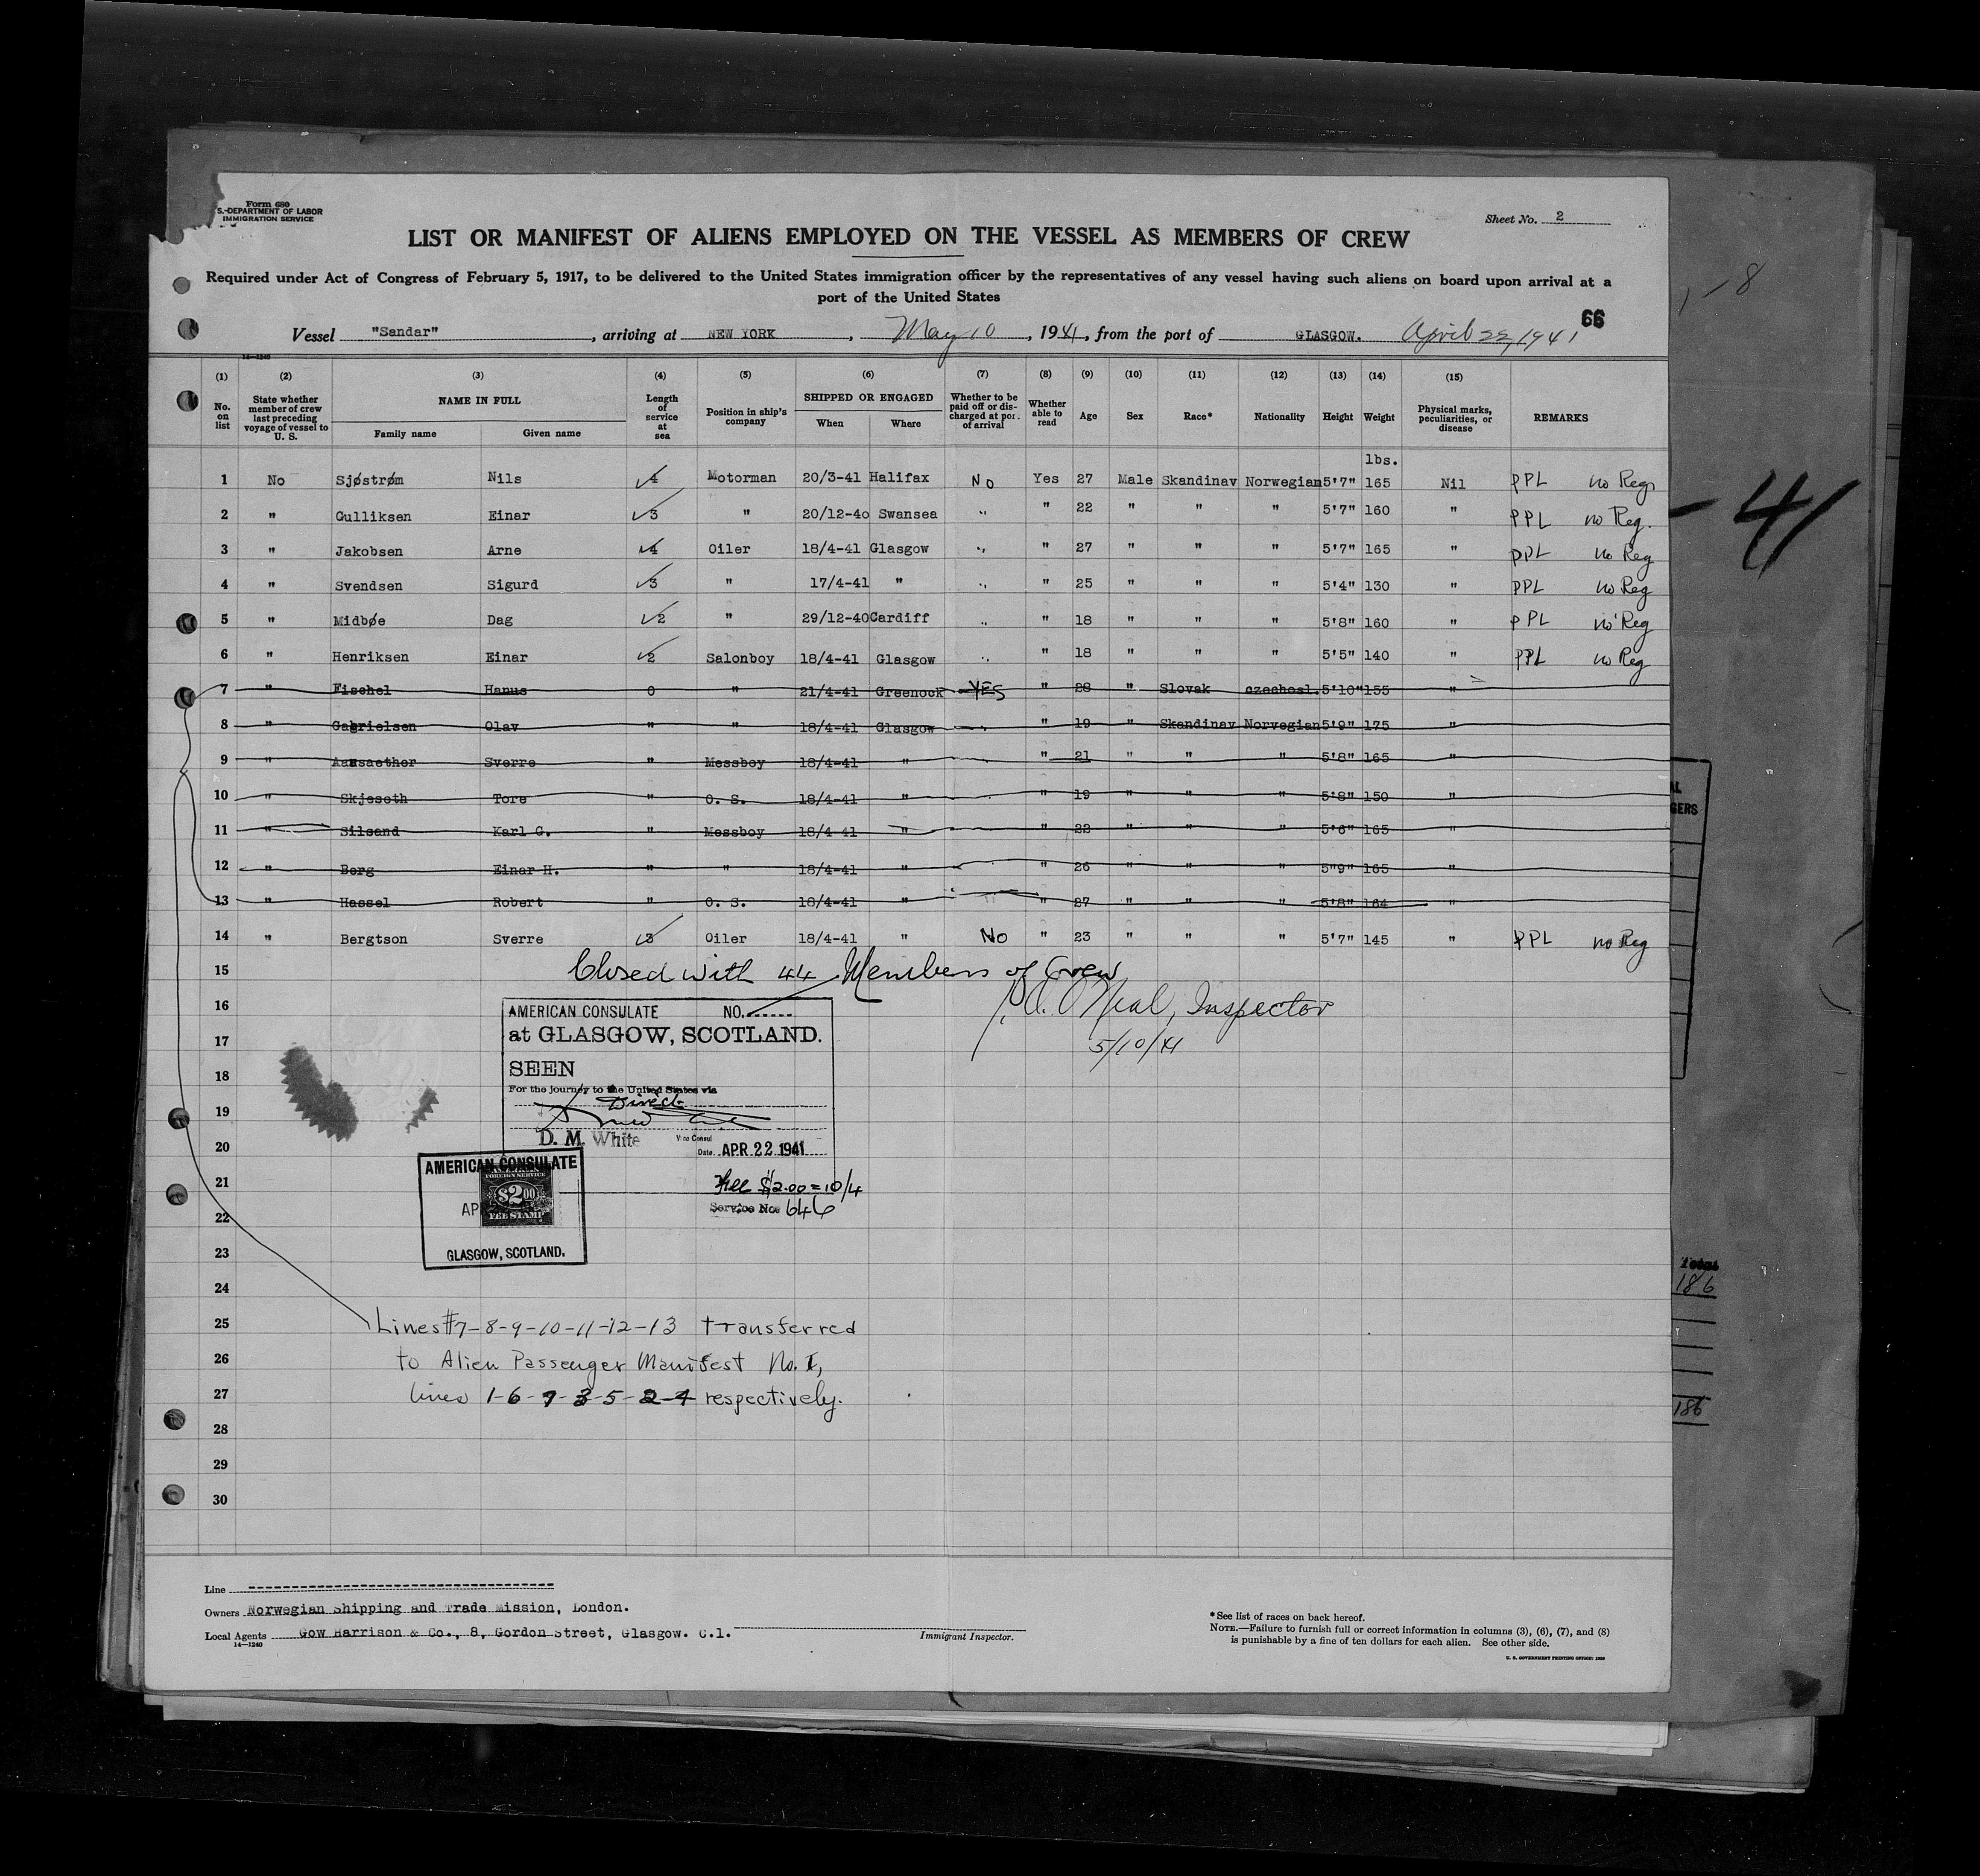 Form 680
S.-DEPARTMENT OF LABOR
IMMIGRATION SERVICE
Sheet No. 2
LIST OR MANIFEST OF ALIENS EMPLOYED ON THE VESSEL AS MEMBERS OF CREW
Required under Act of Congress of February 5, 1917, to be delivered to the United States immigration officer by the representatives of any vessel having such aliens on board upon arrival at a
port of the United States
66
Vessel "Sandar", arriving at NEW YORK, May 10, 1941, from the port of GLASGOW. April 22, 1941
14-1240
(1) (2) (3) (4) (5) (6) (7) (8) (9) (10) (11) (12) (13) (14) (15)
No. on list | State whether member of crew last preceding voyage of vessel to U. S. | NAME IN FULL Family name Given name | Length of service at sea | Position in ship's company | SHIPPED OR ENGAGED When Where | Whether to be paid off or discharged at port of arrival | Whether able to read | Age | Sex | Race* | Nationality | Height | Weight | Physical marks, peculiarities, or disease | REMARKS
lbs.
1 No Sjøstrøm Nils 4 Motorman 20/3-41 Halifax No Yes 27 Male Skandinav Norwegian 5'7" 165 Nil PPL no Reg
2 " Gulliksen Einar 3 " 20/12-40 Swansea " " 22 " " " 5'7" 160 " PPL no Reg.
3 " Jakobsen Arne 4 Oiler 18/4-41 Glasgow " " 27 " " " 5'7" 165 " PPL no Reg
4 " Svendsen Sigurd 3 " 17/4-41 " " " 25 " " " 5'4" 130 " PPL no Reg
5 " Midbøe Dag 2 " 29/12-40 Cardiff " " 18 " " " 5'8" 160 " PPL no Reg
6 " Henriksen Einar 2 Salonboy 18/4-41 Glasgow " " 18 " " " 5'5" 140 " PPL no Reg
7 " Fischel Hanus 0 " 21/4-41 Greenock YES " 28 " Slovak czechosl. 5'10" 155 "
8 " Gabrielsen Olav " " 18/4-41 Glasgow " " 19 " Skandinav Norwegian 5'9" 175 "
9 " Aansaether Sverre " Messboy 18/4-41 " " 21 " " " 5'8" 165 "
10 " Skjeseth Tore " O. S. 18/4-41 " " 19 " " " 5'8" 150 "
11 " Silsand Karl G. " Messboy 18/4-41 " " 22 " " " 5'6" 165 "
12 " Berg Einar H. " " 18/4-41 " " 26 " " " 5"9" 165 "
13 " Hassel Robert " O. S. 18/4-41 " " " 27 " " " 5'8" 164 "
14 " Bergtson Sverre 3 Oiler 18/4-41 " No " 23 " " " 5'7" 145 " PPL no Reg
15 Closed with 44 Members of Crew
16 O'Neal, Inspector
17 5/10/41
AMERICAN CONSULATE NO.
at GLASGOW, SCOTLAND.
SEEN
For the journey to the United States via
Direct
D. M. White Vice Consul
Date APR. 22 1941
Fee $2.00 = 10/4
Service No. 646
AMERICAN CONSULATE
FOREIGN SERVICE
$2.00
FEE STAMP
AP
GLASGOW, SCOTLAND.
18
19
20
21
22
23
24
25 Lines #7-8-9-10-11-12-13 transferred
26 to Alien Passenger Manifest No. I,
27 lines 1-6-7-3-5-2-4 respectively.
28
29
30
Line
Owners Norwegian Shipping and Trade Mission, London.
Local Agents Gow Harrison & Co., 8, Gordon Street, Glasgow. C.1.
14-1240
Immigrant Inspector.
*See list of races on back hereof.
NOTE.—Failure to furnish full or correct information in columns (3), (6), (7), and (8)
is punishable by a fine of ten dollars for each alien. See other side.
U. S. GOVERNMENT PRINTING OFFICE: 1939
- 41
- 8
AL
GERS
Total
186
186